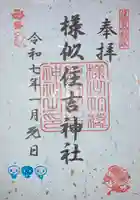 奉拝
様似住吉神社
令和七年一月元日